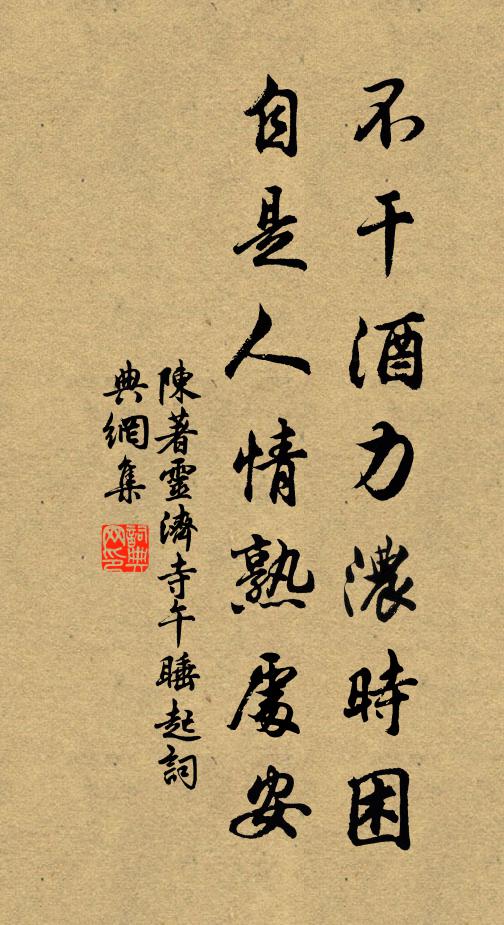 不干酒力濃時困
自是人情熟處安
陳著靈濟寺午睡起詞
典網集
詞典網印